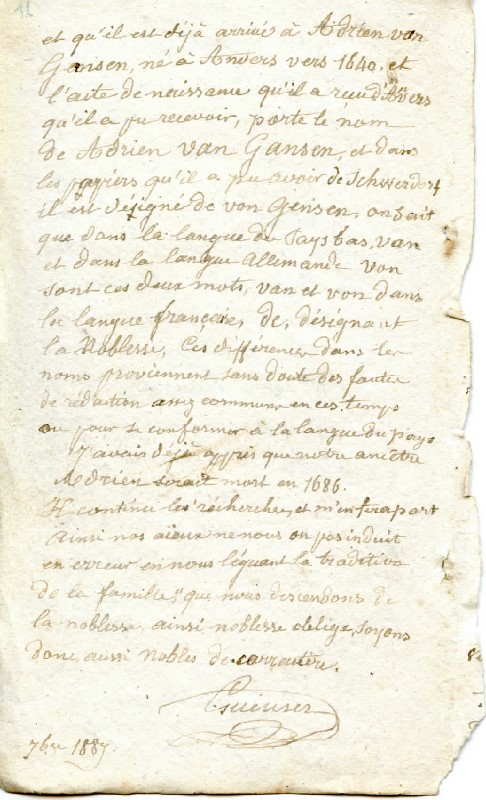 et qu'il est déjà arrivé à Adrien van
Gansen, né à Anvers vers 1640, et
l'acte de naissance qu'il a recu d'Avers
qu'il a pu recevoir, porte le nom
de Adrien van Gansen, et dans
les papiers qu'il a pu avoir de Schwerdorf
il est désigné de von Gensen, on sait
que dans la langue du Pays bas, van
et dans la langue Allemande von
sont ces deux mots, van et von dans
la langue française, de, désignant
la Noblesse, Ces différences dans les
noms proviennent sans doute des faute
de rédaction assez commune en ces temps
ou pour se conformer à la langue du pays
J'avais déjà appris que notre ancêtre
Adrien serait mort en 1686.
Il continue les récherches, et m'en fera part
ainsi nos aïeux ne nous on pas induit
en erreur en nous léguant la traditive
de la famille, "que nous descendons de
la noblesse, ainsi noblesse oblige, soyons
donc aussi nobles de carractère.
7bre 1887.